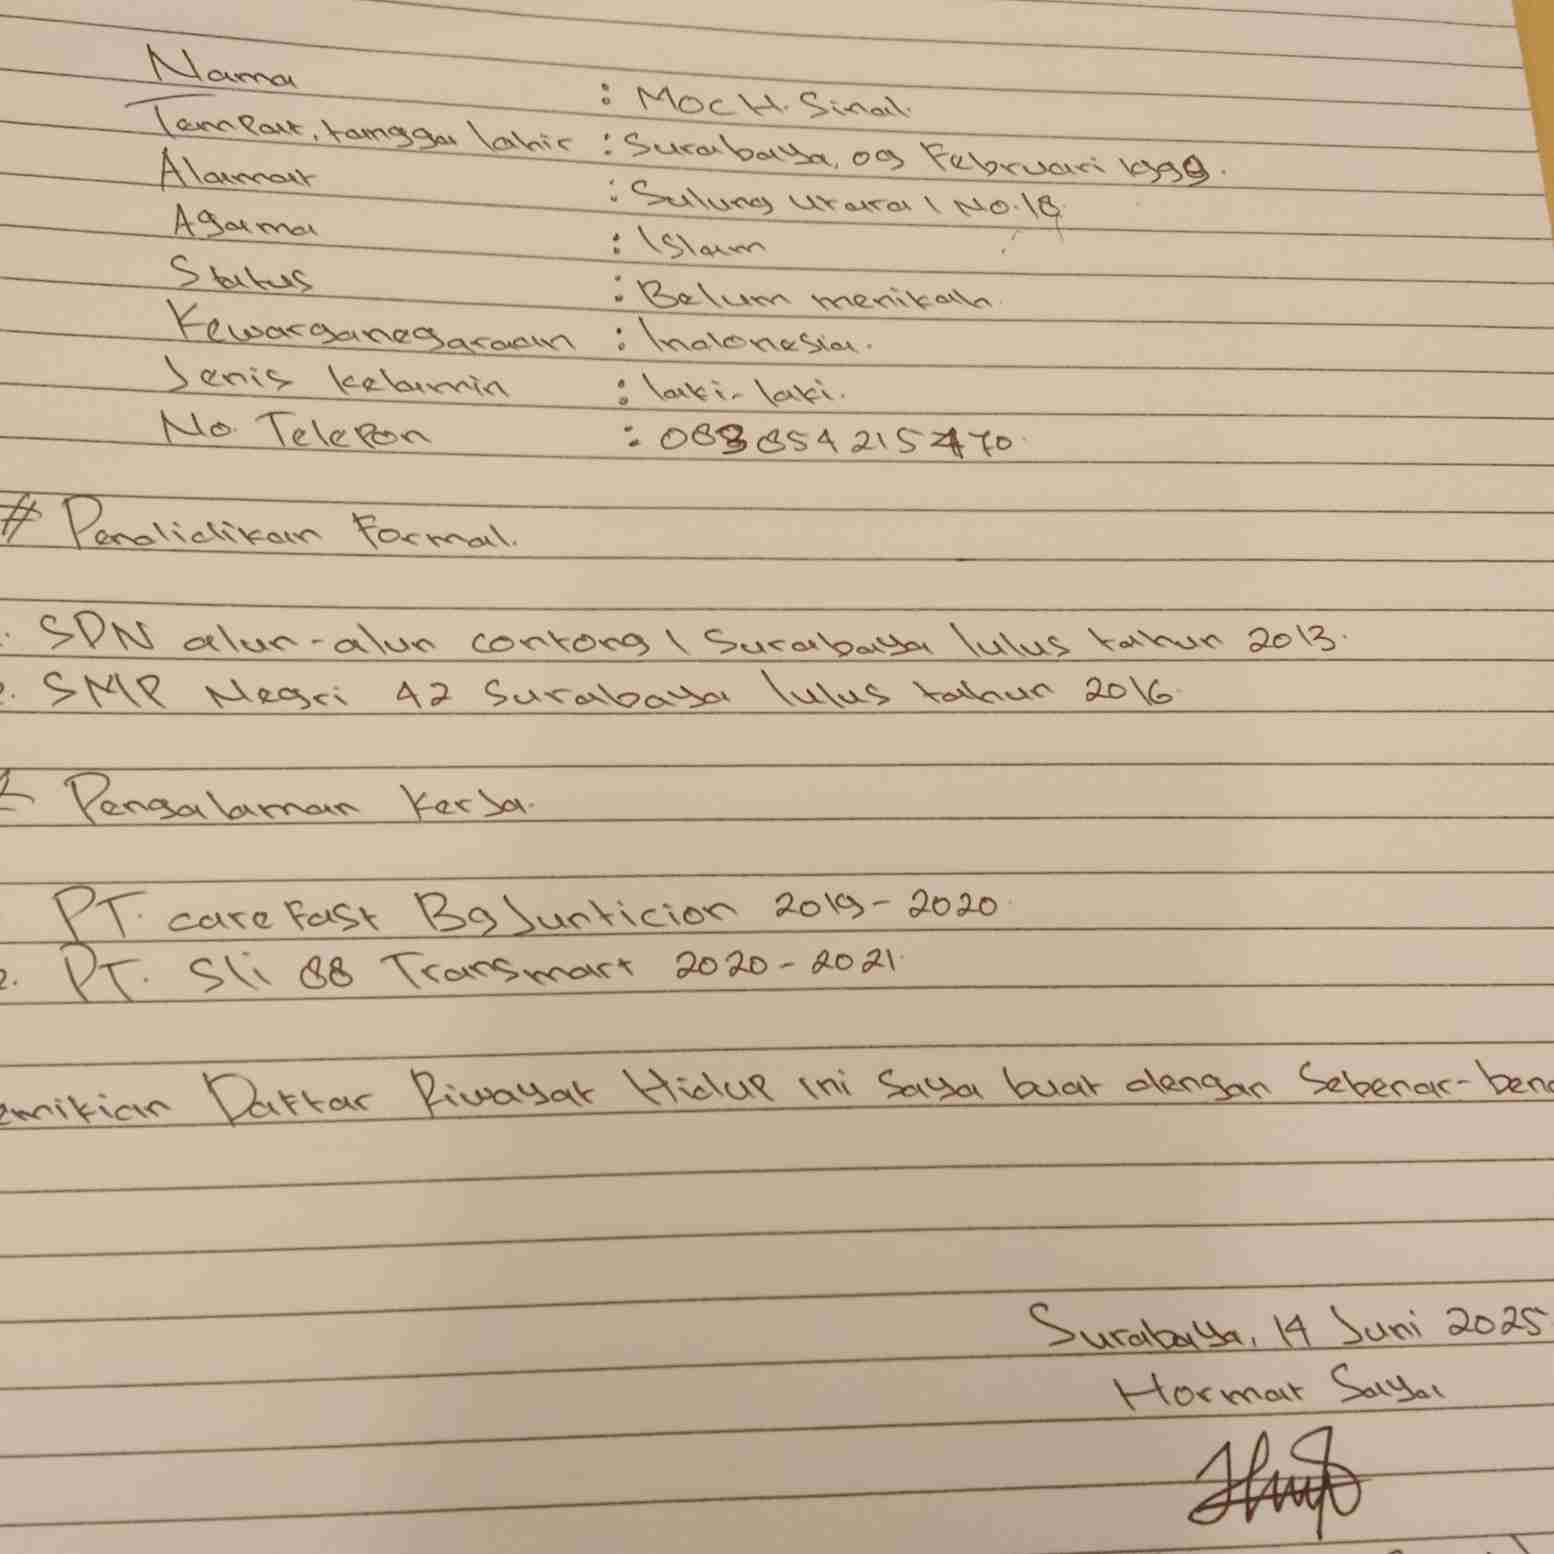 Nama : MOCH. Sinal.
Tempat, tanggal lahir : Surabaya, 09 Februari 1999.
Alamat : Sulung Utara 1 No.18
Agama : Islam
Status : Belum menikah.
Kewarganegaraan : Indonesia.
Jenis kelamin : laki-laki.
No Telepon : 083854215470.
# Pendidikan Formal.
. SDN alun-alun contong 1 Surabaya lulus tahun 2013.
2. SMP Negri 42 Surabaya lulus tahun 2016.
Pengalaman Kerja.
PT. care Fast Bg Junticion 2019-2020.
2. PT. Sli 88 Transmart 2020-2021.
emikian Daftar Riwayat Hidup ini Saya buat dengan Sebenar-bena
Surabaya, 14 Juni 2025
Hormat Saya